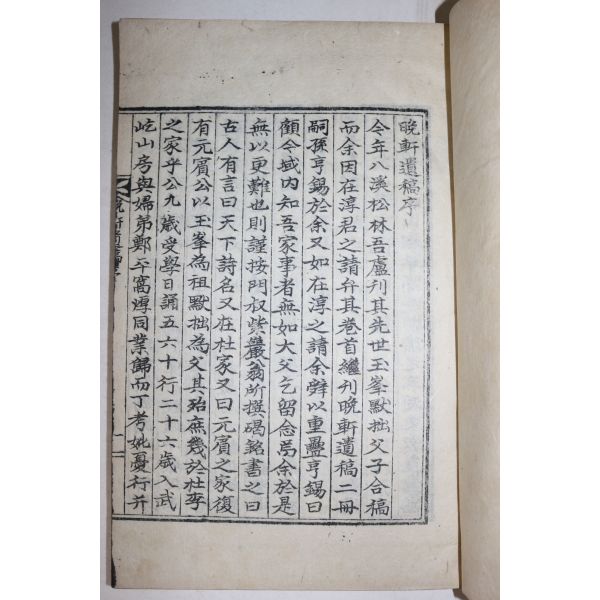 晩軒遺稿序
今年八溪松林吾盧刊其先世玉峯默拙父子合稿
而余因在淳君之請弁其卷首繼刊晩軒遺稿二冊
嗣孫亨錫於余又如在淳之請余辭以重疊亨錫曰
顧今域內知吾家事者無如大父乞留念焉余於是
無以更難也則謹按門叔紫巖翁所撰碣銘書之曰
古人有言曰天下詩名又在杜家又曰元賓之家復
有元賓公以玉峯為祖默拙為父其殆庶幾於杜李
之家乎公九歲受學日誦五六十行二十六歲入武
屹山房與婦弟鄭平窩焞同業歸而丁考妣憂行幷
晩軒遺稿序
一